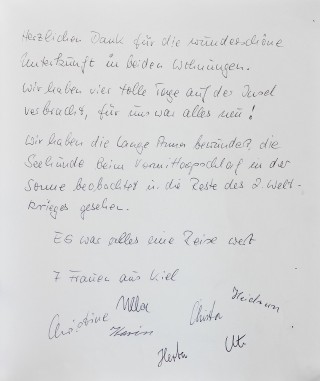 Herzlichen Dank für die wunderschöne
Unterkunft in beiden Wohnungen.
Wir haben vier tolle Tage auf der Insel
verbracht, für uns war alles neu!
Wir haben die Lange Anna bewundert, die
Seehunde beim Vormittagsschlaf in der
Sonne beobachtet u. die Reste des 2. Welt-
krieges gesehen.
Es war alles eine Reise wert
7 Frauen aus Kiel
Christine Ulla Christa
Karin
Ute